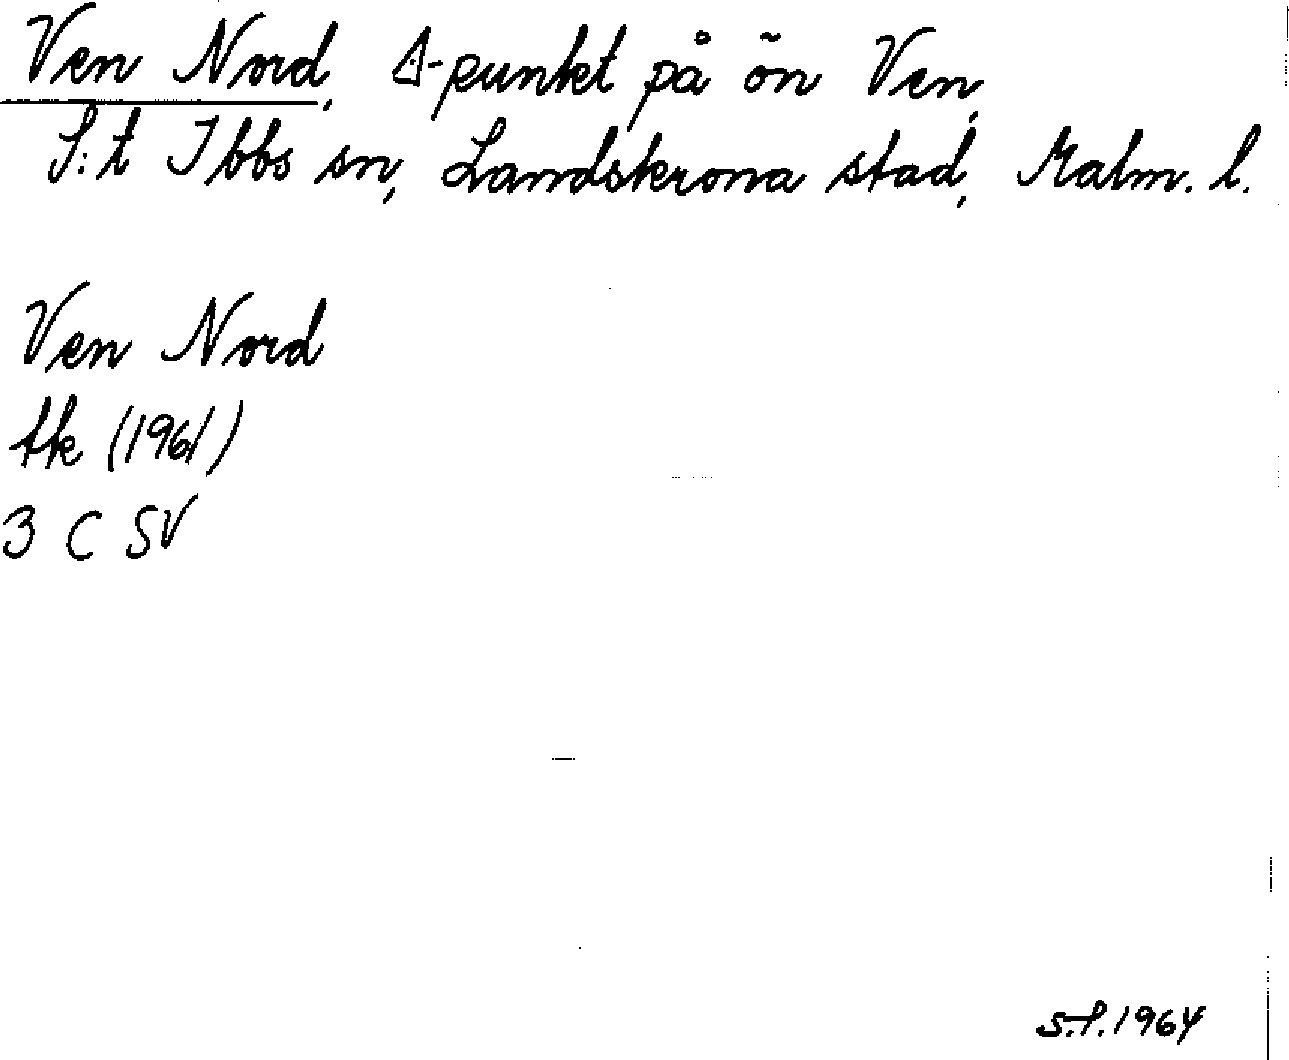 Ven Nord, Δ-punkt på ön Ven,
S:t Ibbs sn, Landskrona stad, Malm. l.
Ven Nord
tk (1961)
3 C SV
S.F. 1964